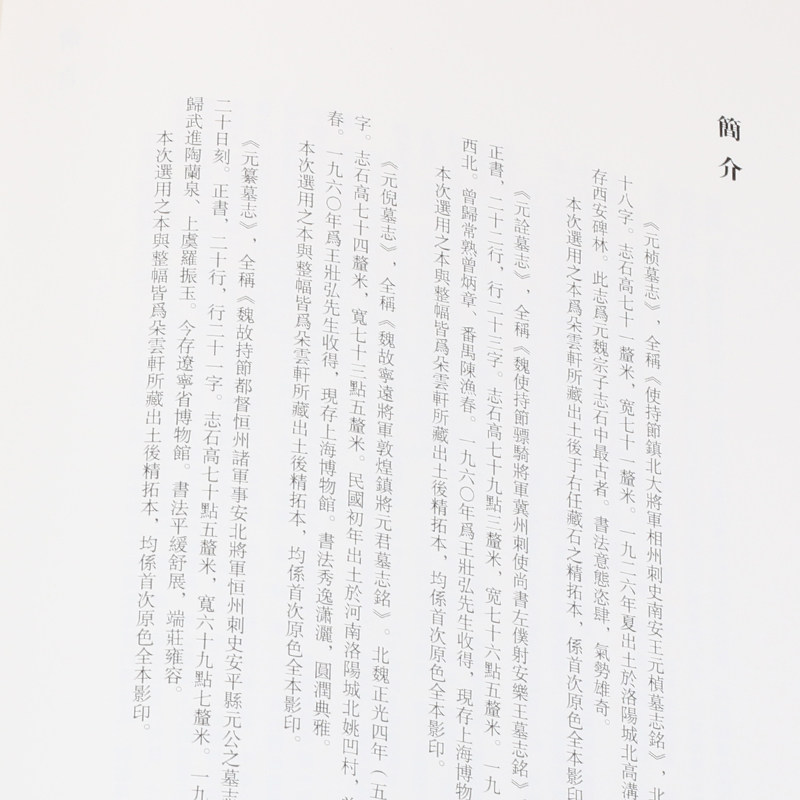 簡介
《元楨墓志》，全稱《使持節鎮北大將軍相州刺史南安王元楨墓志銘》，北
十八字。志石高七十一釐米，宽七十一釐米。一九二六年夏出土於洛陽城北高溝
存西安碑林。此志爲元魏宗子志石中最古者。書法意態恣肆，氣勢雄奇。
本次選用之本爲朵雲軒所藏出土後于右任藏石之精拓本，係首次原色全本影印
《元詮墓志》，全稱《魏使持節驃騎將軍冀州刺使尚書左僕射安樂王墓志銘》
正書，二十二行，行二十三字。志石高七十九點三釐米，宽七十六點五釐米。一九
西北。曾歸常熟曾炳章、番禺陳漁春。一九六〇年爲王壯弘先生收得，現存上海博物
本次選用之本與整幅皆爲朵雲軒所藏出土後精拓本，均係首次原色全本影印。
《元倪墓志》，全稱《魏故寧遠將軍敦煌鎮將元君墓志銘》。北魏正光四年（五
字。志石高七十四釐米，寬七十三點五釐米。民國初年出土於河南洛陽城北姚凹村，
春。一九六〇年爲王壯弘先生收得，現存上海博物館。書法秀逸瀟灑，圓潤典雅。
本次選用之本與整幅皆爲朵雲軒所藏出土後精拓本，均係首次原色全本影印。
《元纂墓志》，全稱《魏故持節都督恒州諸軍事安北將軍恒州刺史安平縣元公之墓志
二十日刻。正書，二十行，行二十一字。志石高七十點五釐米，寬六十九點七釐米。一九
歸武進陶蘭泉、上虞羅振玉。今存遼寧省博物館。書法平緩舒展，端莊雍容。
本次選用之本與整幅皆爲朵雲軒所藏出土後精拓本，均係首次原色全本影印。